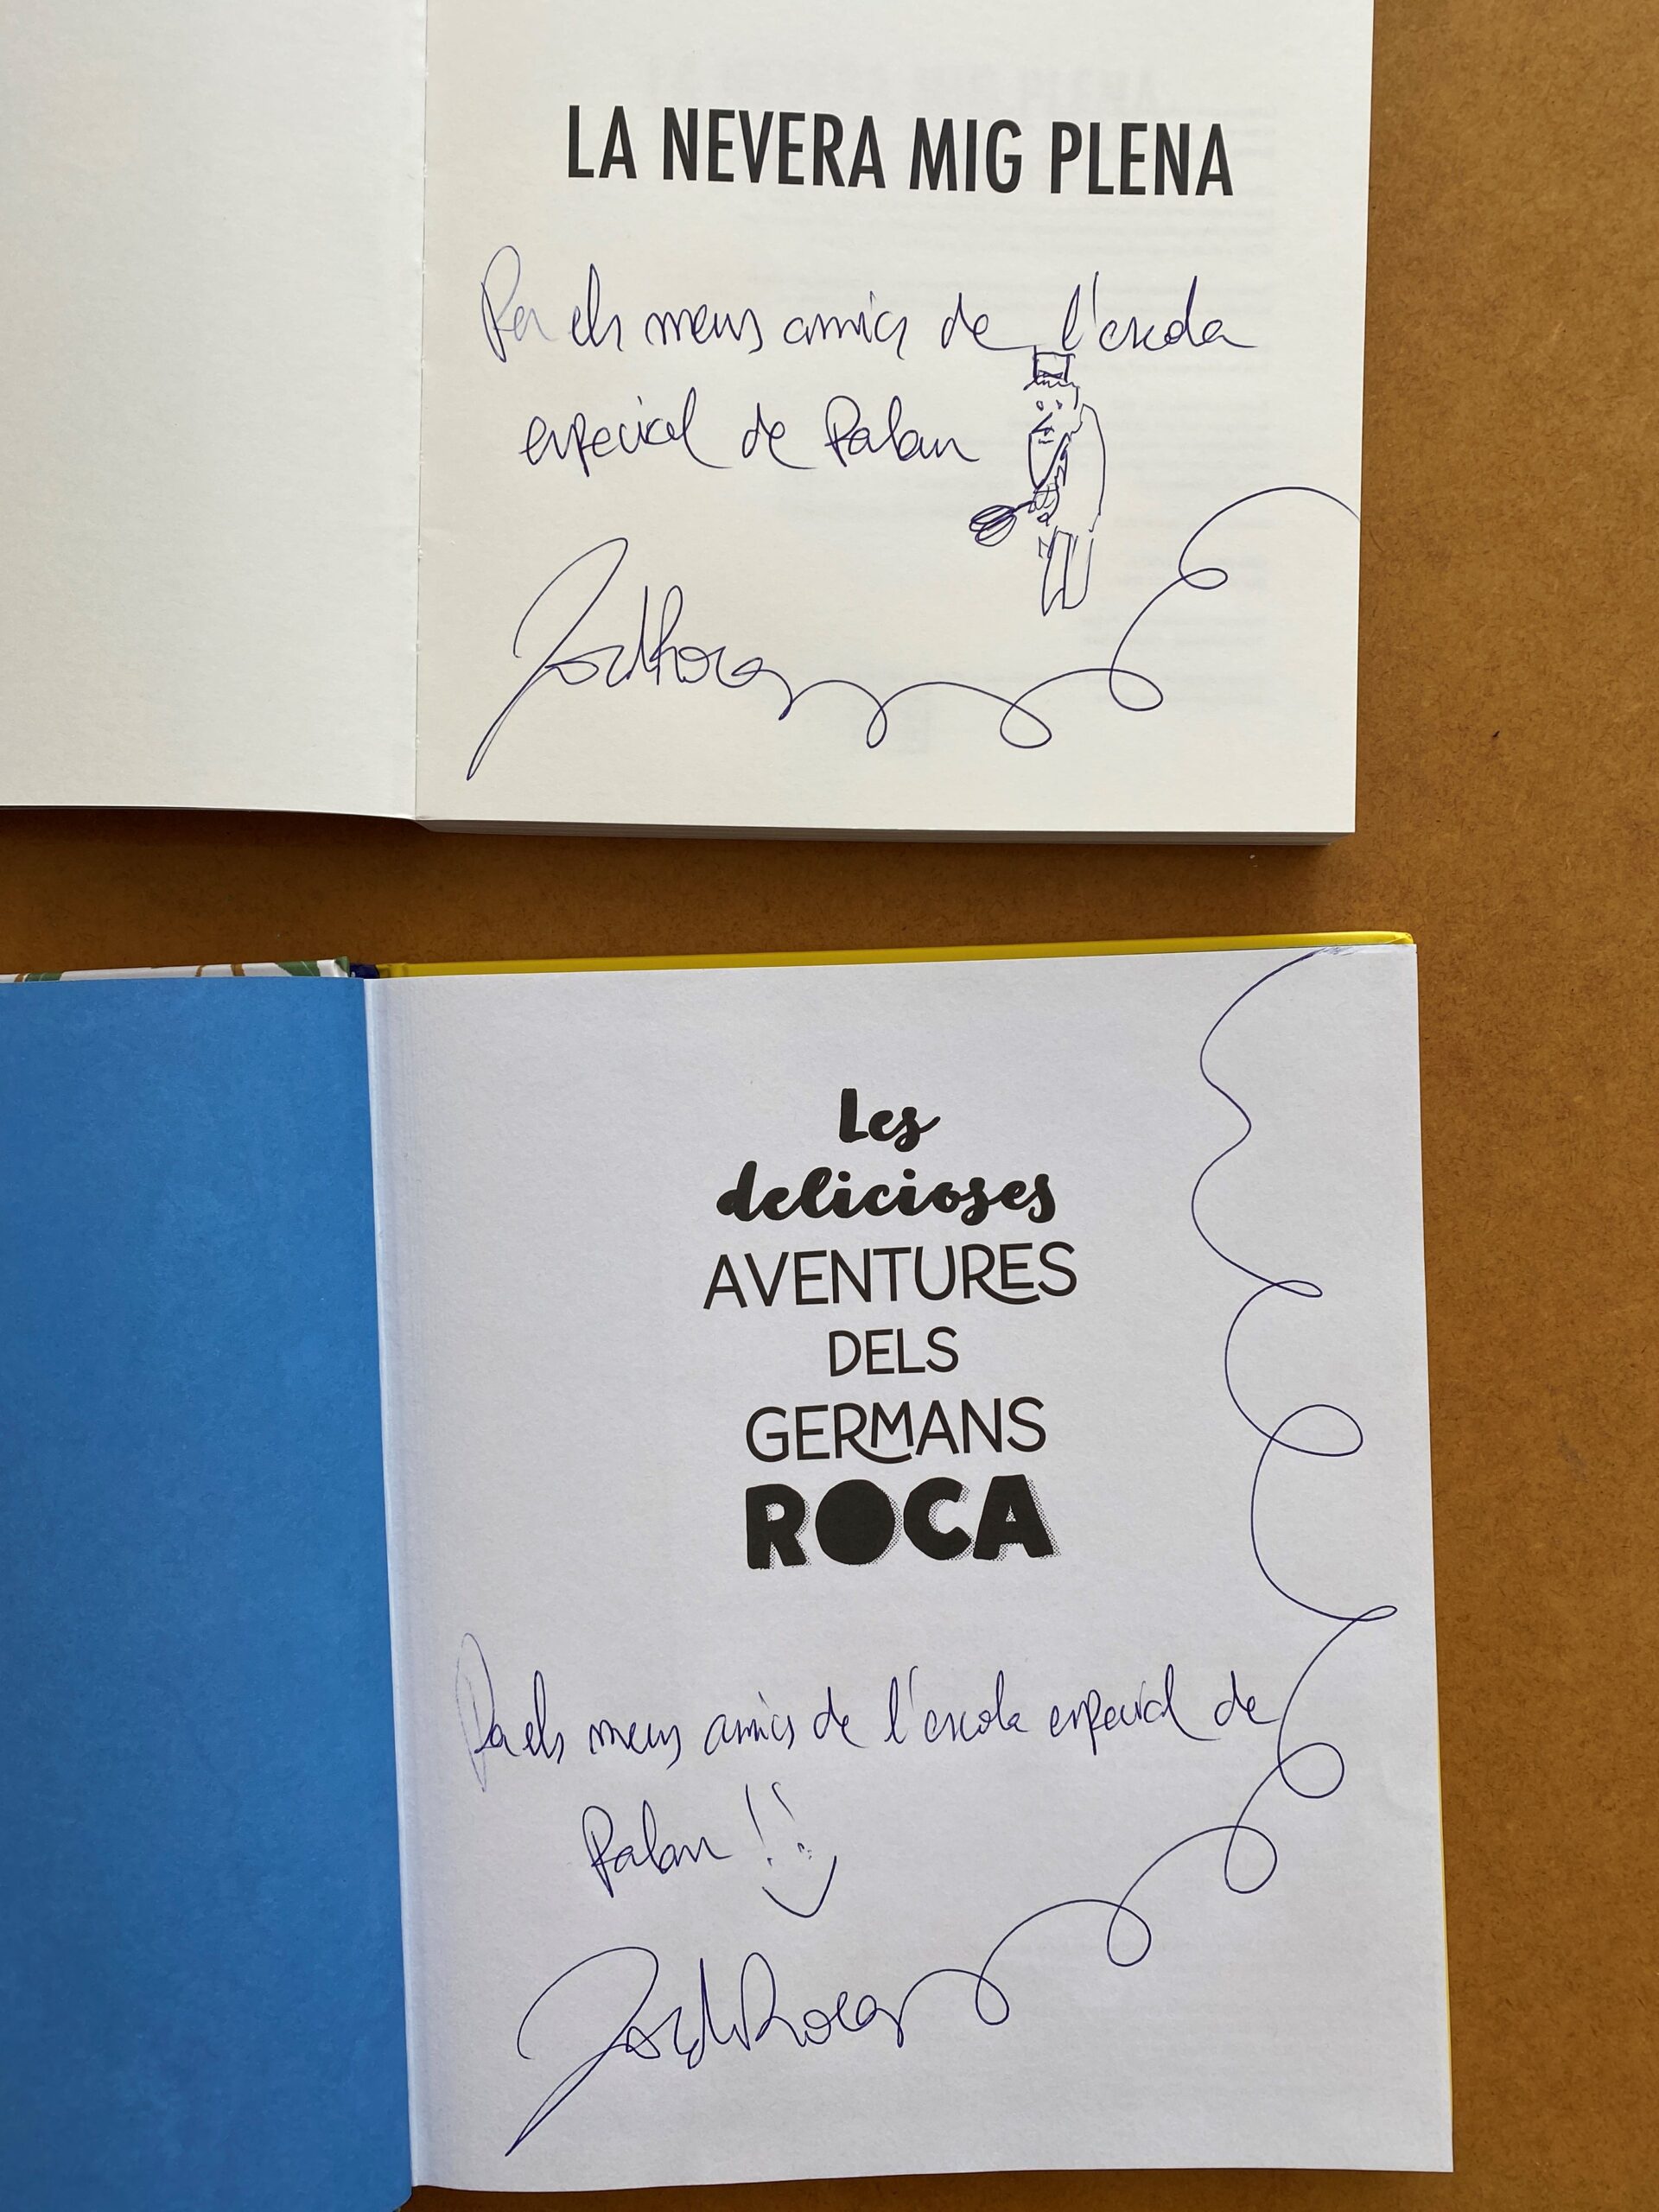 LA NEVERA MIG PLENA
Per els meus amics de l'escola
especial de Palau
Jordi Roca
Les
delicioses
AVENTURES
DELS
GERMANS
ROCA
Per els meus amics de l'escola especial de
Palau!!
Jordi Roca